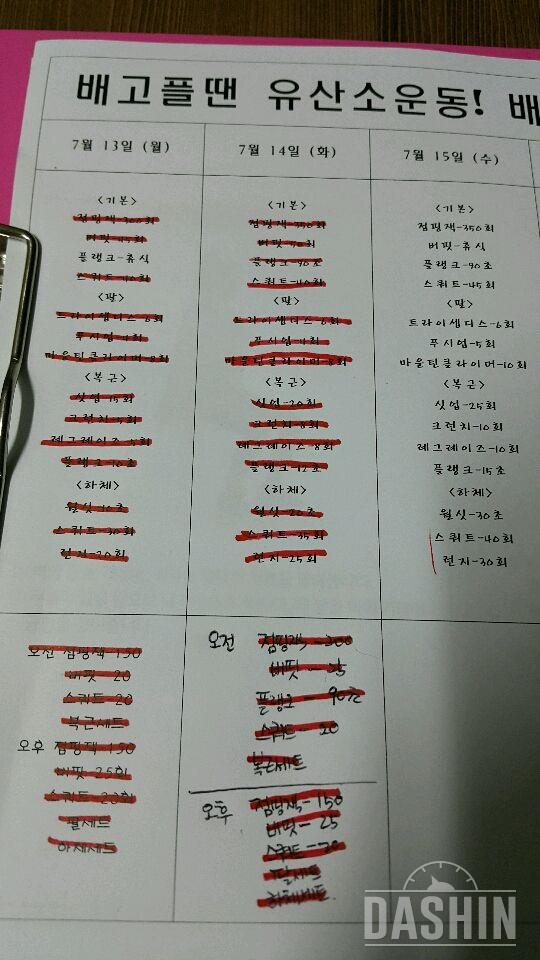 배고플땐 유산소운동! 배
7월 13일 (월)
<기본>
점핑잭-300회
버핏-45회
플랭크-휴식
스쿼트-40회
<팔>
트라이셉디스-6회
푸시업-4회
마운틴클라이머-8회
<복근>
싯업-15회
크런치-5회
레그레이즈-5회
플랭크-10초
<하체>
월싯-10초
스쿼트-30회
런지-20회
오전 점핑잭 150
버핏 20
스쿼트 20
복근세트
오후 점핑잭 150
버핏 25회
스쿼트 20회
팔세트
하체세트
7월 14일 (화)
<기본>
점핑잭-350회
버핏-50회
플랭크-90초
스쿼트-40회
<팔>
트라이셉디스-6회
푸시업-4회
마운틴클라이머-8회
<복근>
싯업-20회
크런치-8회
레그레이즈-8회
플랭크-12초
<하체>
월싯-20초
스쿼트-35회
런지-25회
오전 점핑잭-200
버핏-25
플랭크-90초
스쿼트-20
복근세트
오후 점핑잭-150
버핏-25
스쿼트-20
팔세트
하체세트
7월 15일 (수)
<기본>
점핑잭-350회
버핏-휴식
플랭크-90초
스쿼트-45회
<팔>
트라이셉디스-6회
푸시업-5회
마운틴클라이머-10회
<복근>
싯업-25회
크런치-10회
레그레이즈-10회
플랭크-15초
<하체>
월싯-30초
스쿼트-40회
런지-30회
DASHIN